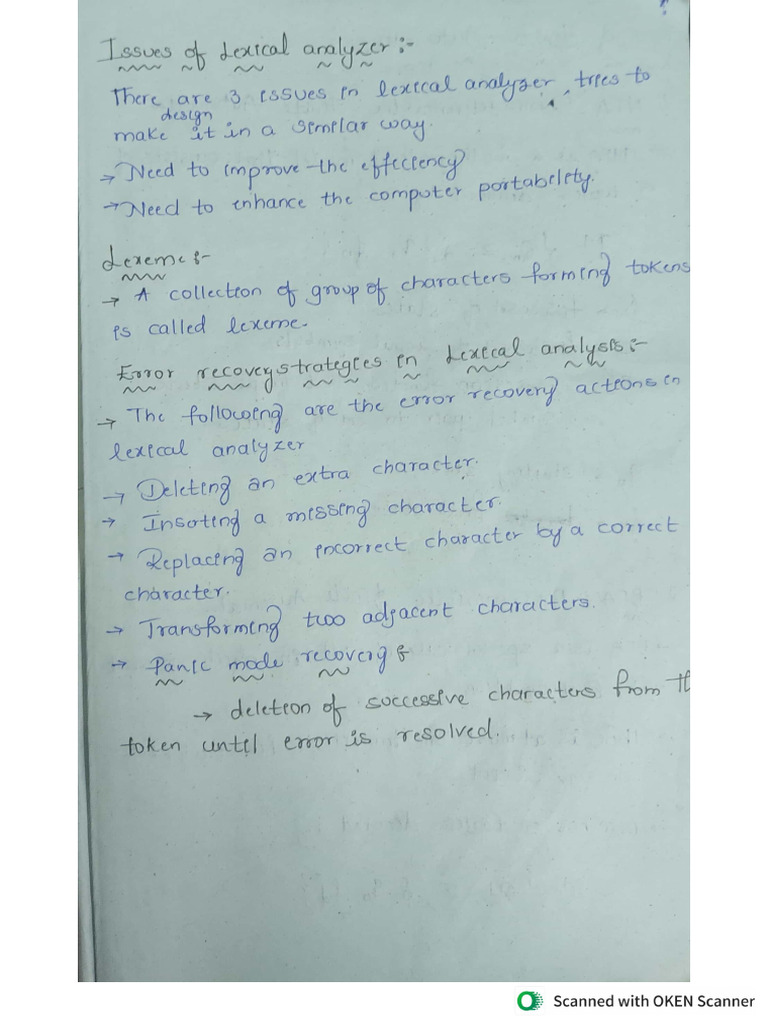 Issues of Lexical analyzer:-
There are 3 issues in lexical analyzer, tries to
design
make it in a similar way.
→ Need to improve the efficiency
→ Need to enhance the computer portability.
Lexeme:-
→ A collection of group of characters forming tokens
is called lexeme.
Error recovery strategies in Lexical analysis:-
→ The following are the error recovery actions in
lexical analyzer
→ Deleting an extra character.
→ Inserting a missing character.
→ Replacing an incorrect character by a correct
character.
→ Transforming two adjacent characters.
→ Panic mode recovery:
→ deletion of successive characters from th
token until error is resolved.
Scanned with OKEN Scanner